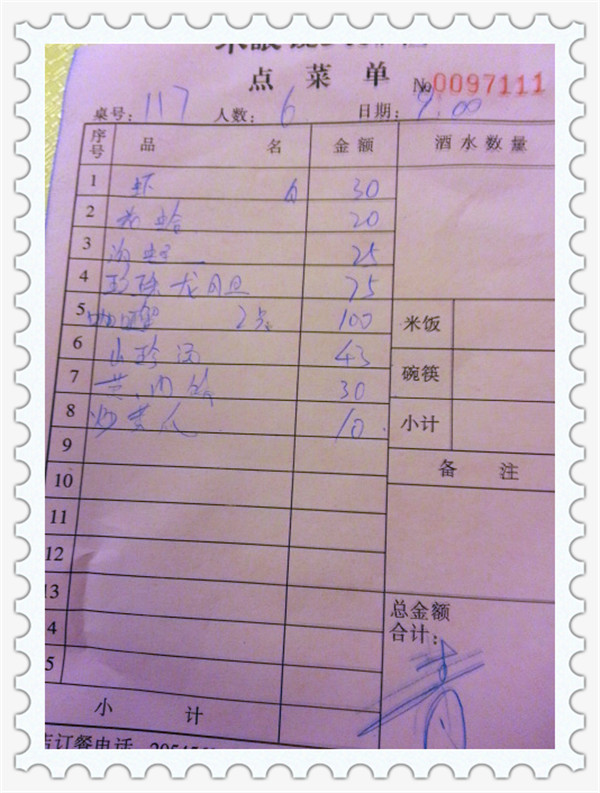 点菜单
No 0097111
桌号: 117 人数: 6 日期: 9.00
序号 品 名 金额 酒水数量
1 虾 30
2 花蛤 20
3 25
4 珍珠龙胆 75
5 100
6 山珍汤 43
7 30
8 炒黄瓜 10
9
10
11
12
13
4
5
米饭
碗筷
小计
备 注
总金额
合计:
小 计
店订餐电话